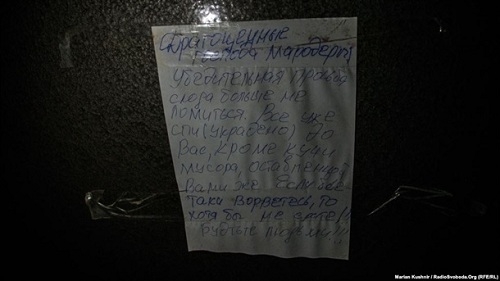 Драгоценные
мародеры!
Убедительная просьба
сюда больше не
ломиться. Все уже
спи(украдено) до
вас, кроме кучи
мусора, оставленной
вами же. Если все
таки ворветесь, то
хотя бы не
Будьте людьми!!!
Marian Kushnir / RadioSvoboda.Org (RFE/RL)